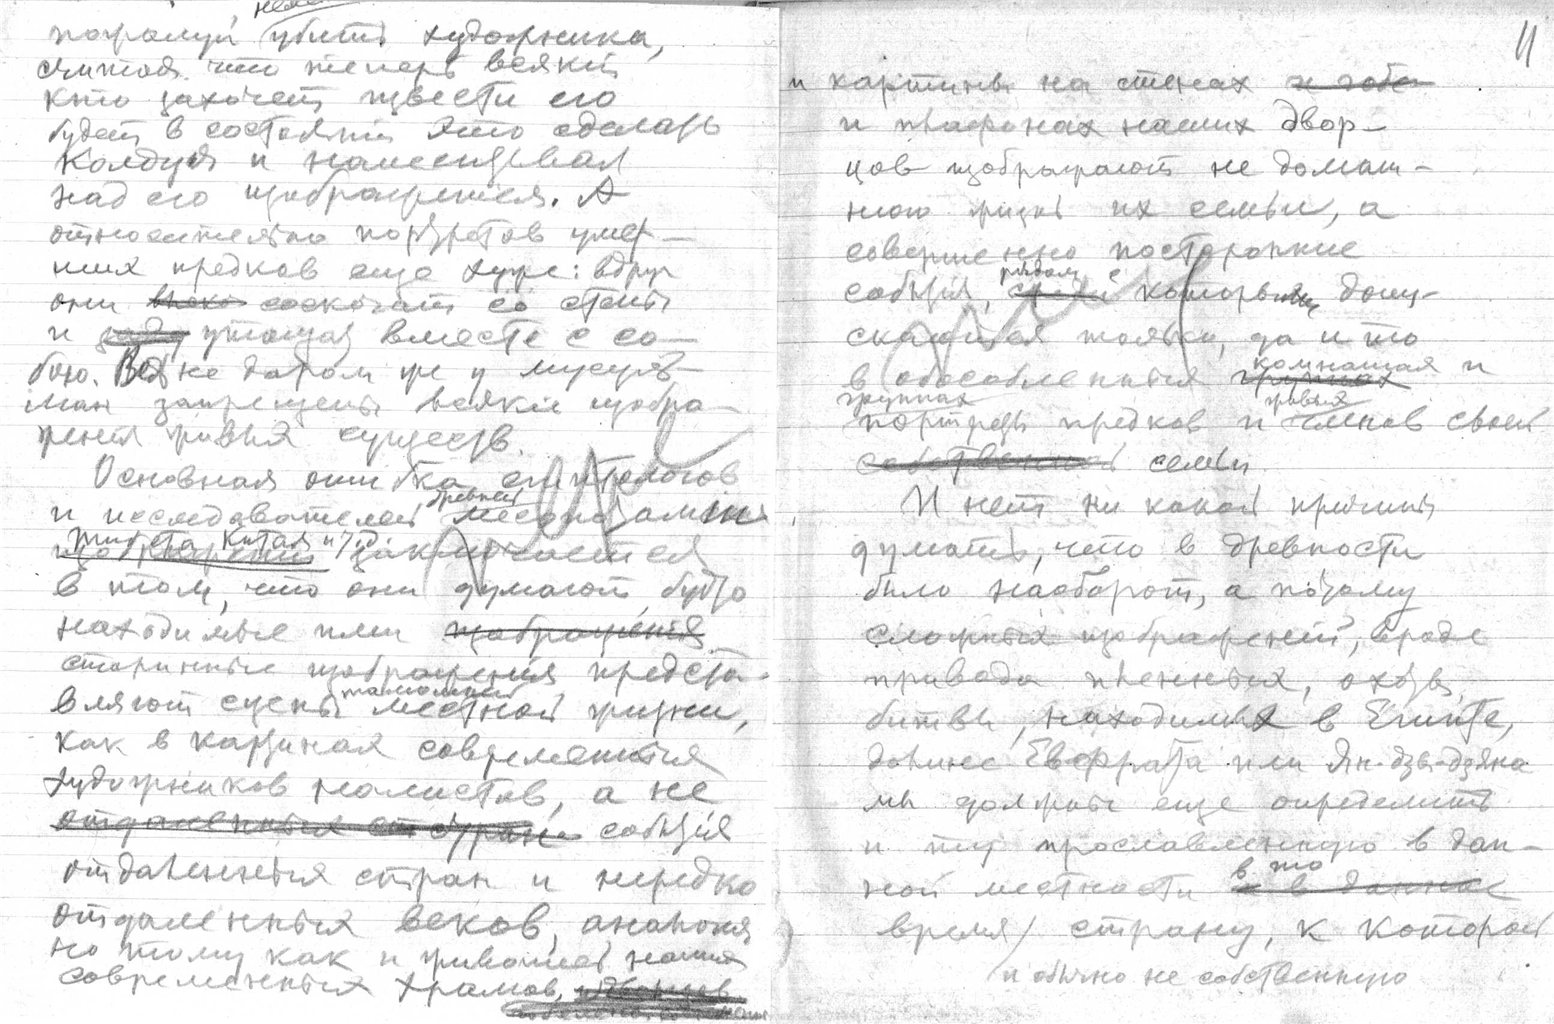 пожалуй убить художника,
считая что теперь всякий
кто захочет извести его
будет в состоянии это сделать
колдуя и нашептывая
над его изображением. А
относительно портретов умер-
ших предков еще хуже: вдруг
они соскочат со стены
и утащат вместе с со-
бою. Ведь не даром же у мусуль-
ман запрещены всякие изобра-
жения живых существ.
Основная ошибка египтологов
и исследователей древней Месопотамии
Тибета, Китая и т.д. заключается
в том, что они думают, будто
находимые ими изображения
старинные изображения предста-
вляют сцены тамошней местной жизни,
как в картинах современных
художников реалистов, а не
отдаленных стран события
отдаленных стран и нередко
отдаленных веков, аналогич
но тому как и живопись наших
современных храмов, дворцов
11
и картины на стенах
и плафонах наших двор-
цов изображают не домаш-
нюю жизнь их семьи, а
совершенно посторонние
события, рядом с которыми допу-
скаются только, да и то
в обособленных комнатах и
группах живых
портреты предков и членов своей
собственной семьи.
И нет ни какой причины
думать, что в древности
было наоборот, а потому
сложных изображений, вроде
привода пленных, охоты,
битвы, находимых в Египте,
долине Евфрата или Ян-дзы-дзяна
мы должны еще определить
и ту прославленную в дан-
ной местности в то
время страну, к которой
и обычно не собственную